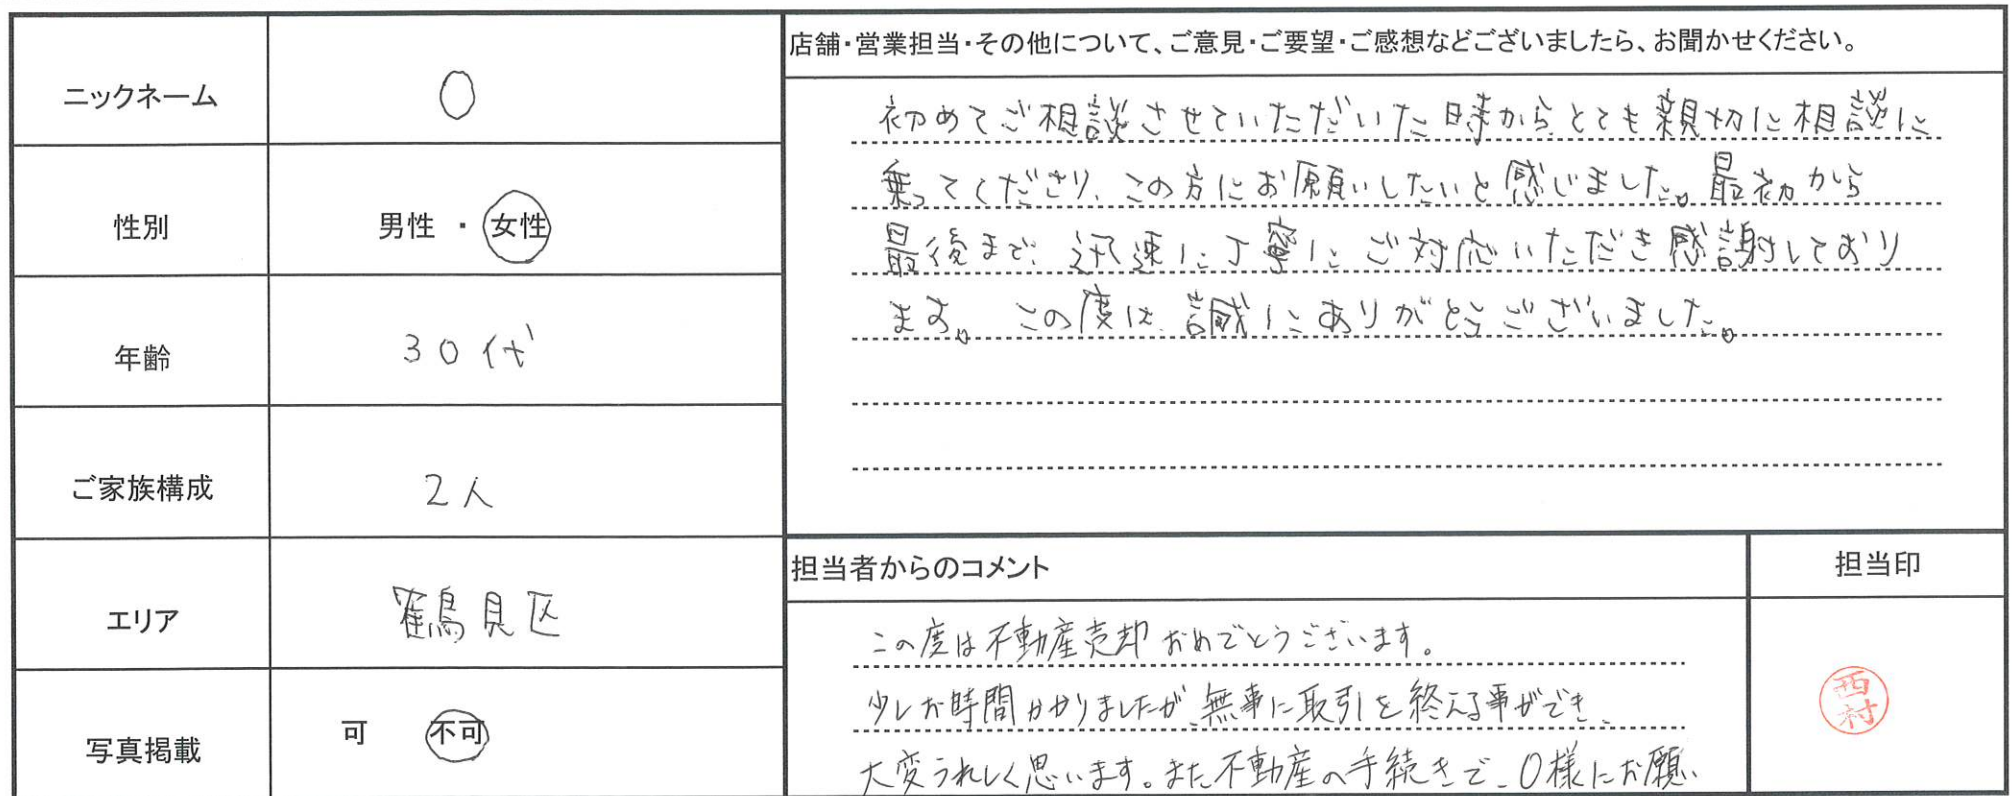 ニックネーム
O
性別
男性 ・ 女性
年齢
30代
ご家族構成
2人
エリア
鶴見区
写真掲載
可 不可
店舗・営業担当・その他について、ご意見・ご要望・ご感想などございましたら、お聞かせください。
初めてご相談させていただいた時から、とても親切に相談に
乗ってくださり、この方にお願いしたいと感じました。最初から
最後まで、迅速に丁寧にご対応いただき感謝しており
ます。この度は、誠にありがとうございました。
担当者からのコメント
この度は不動産売却おめでとうございます。
少しお時間かかりましたが、無事に取引を終える事ができ、
大変うれしく思います。また、不動産の手続きで、O様にお願い
担当印
西村